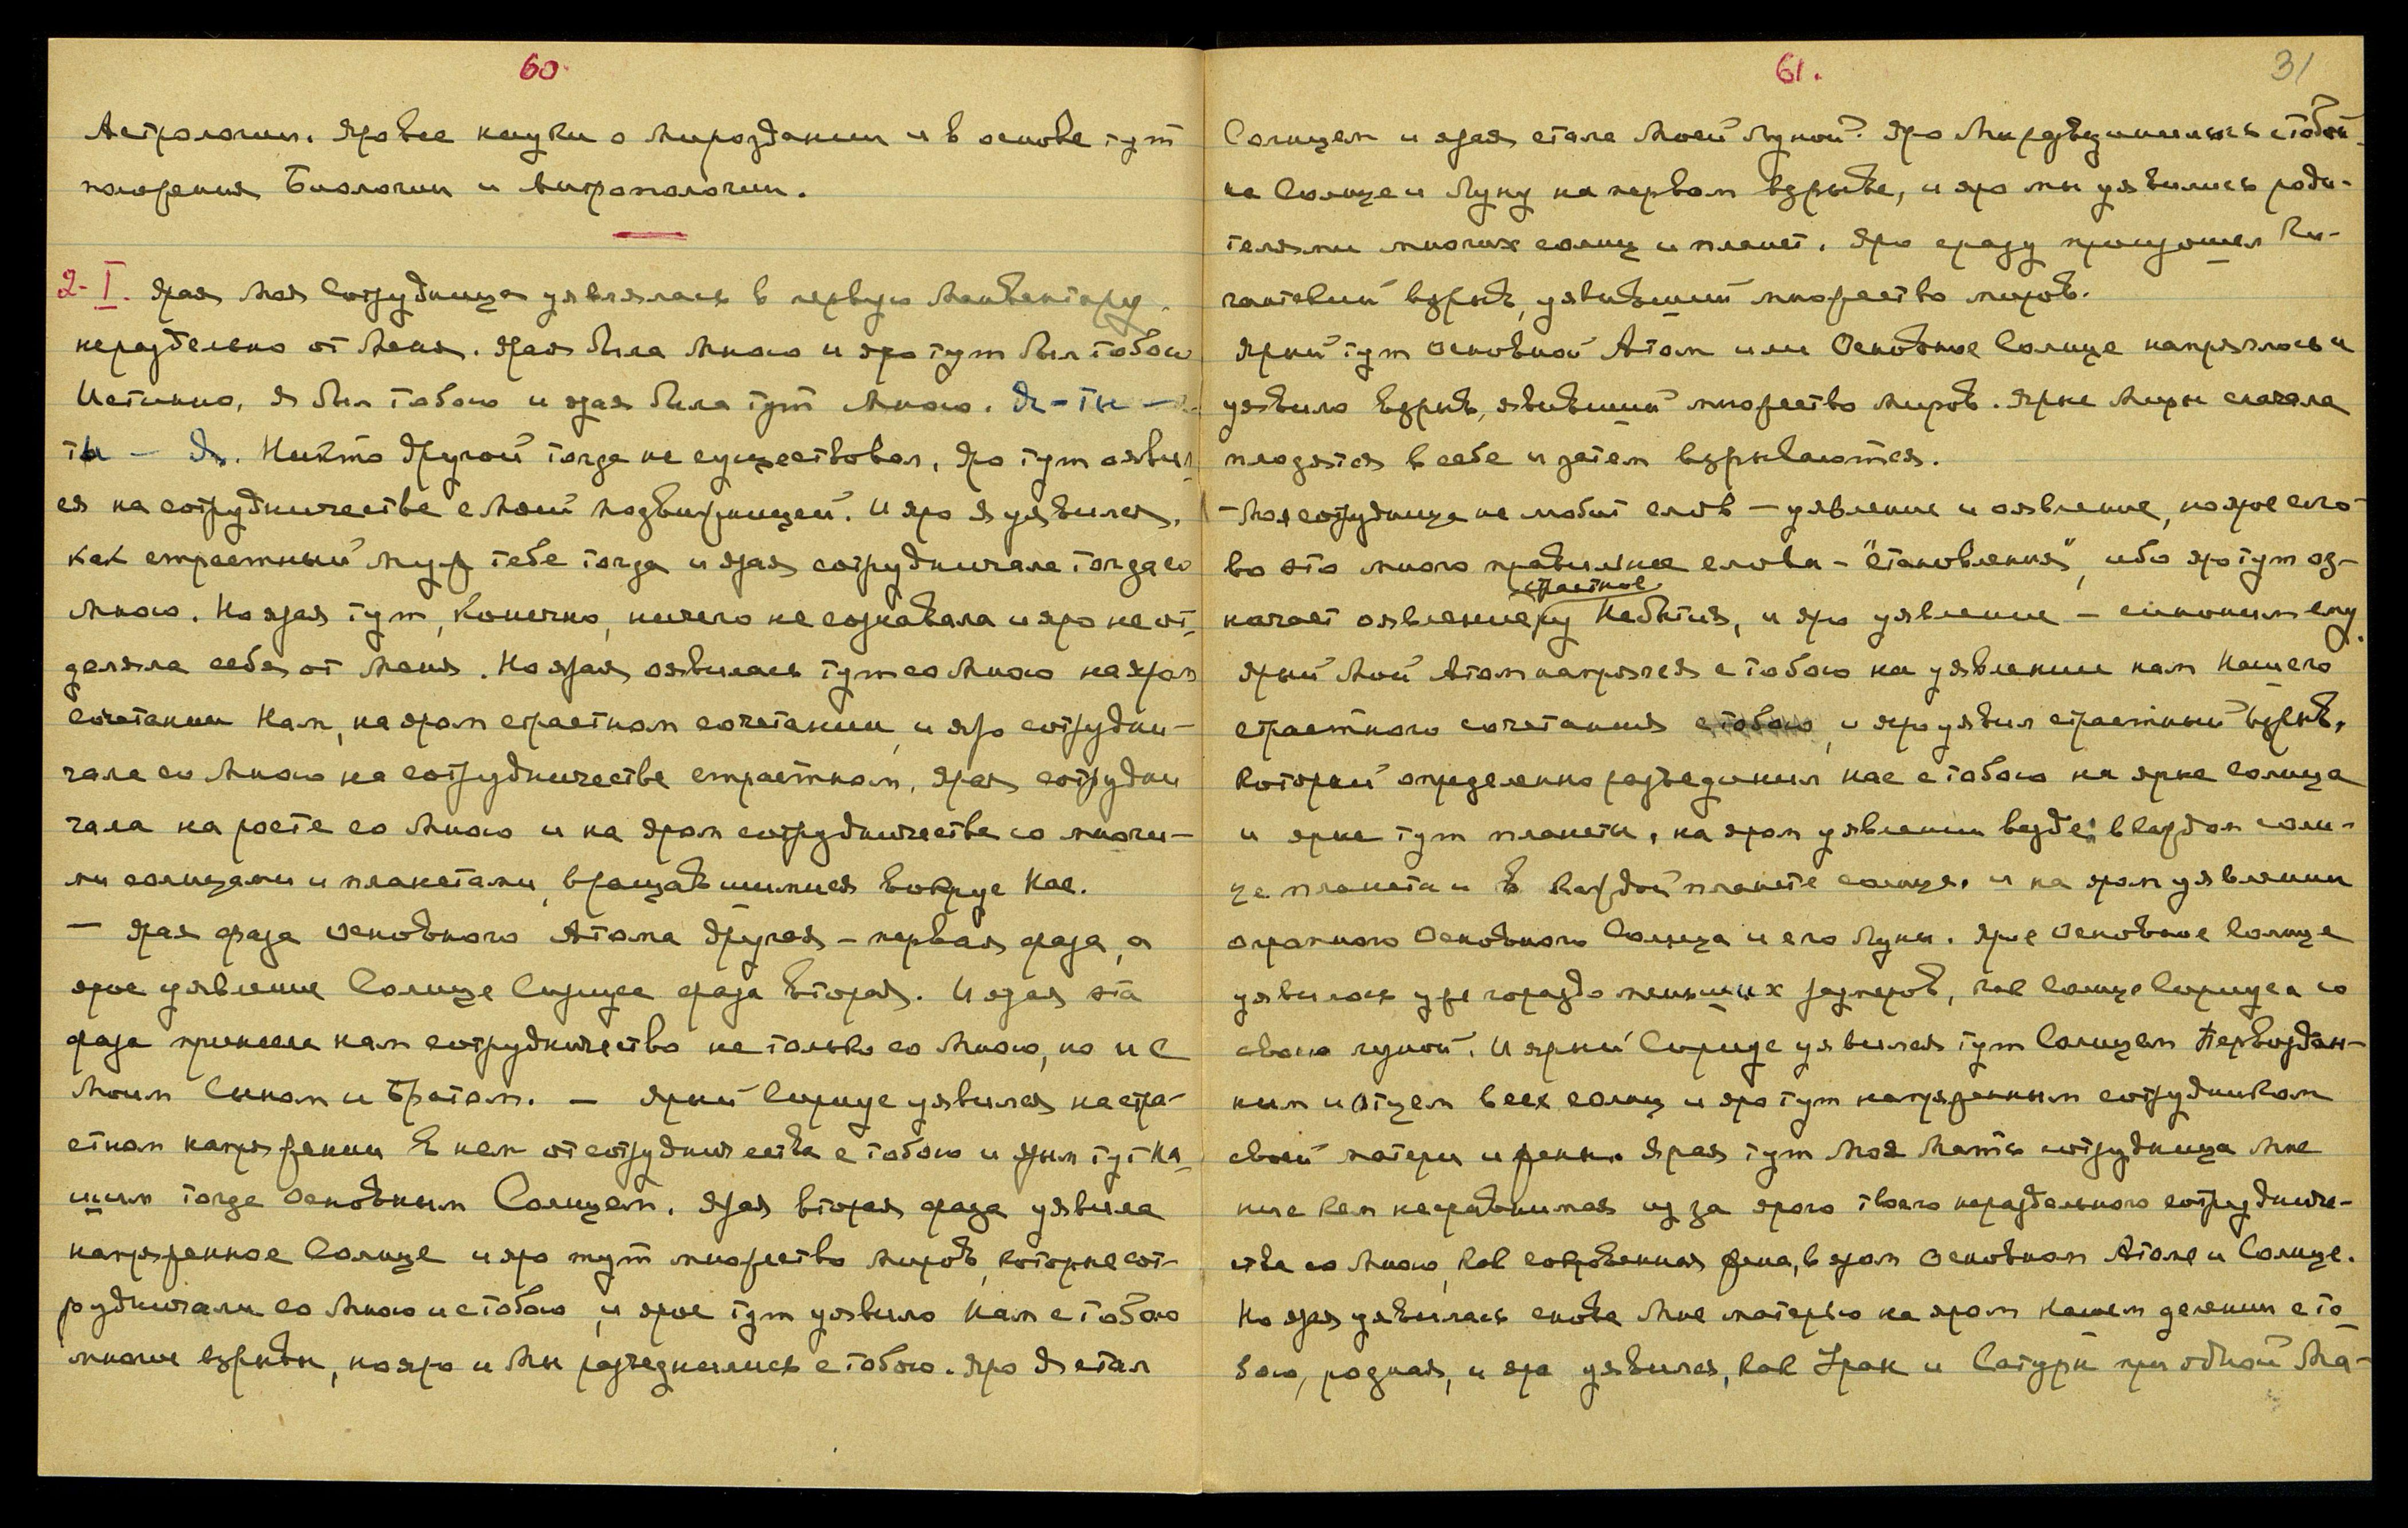 60.
Астрологии. Яро все науки о мироздании и в основе тут
положения Биологии и Антропологии.
2-I. Ярая Моя Сотрудница уявлялась в первую Манвантару
нераздельно от Меня. Ярая была Мною и яро тут был тобою
Истинно, Я был тобою и ярая была тут Мною. Я – ты –
ты – Я. Никто другой тогда не существовал. Яро тут оявил-
ся на сотрудничестве с Моей подвижницей. И яро Я уявился,
как страстный муж тебе тогда и ярая сотрудничала тогда со
Мною. Но ярая тут, конечно, ничего не сознавала и яро не от-
деляла себя от Меня. Но ярая оявилась тут со Мною на яром
сочетании Нам, на яром страстном сочетании, и яро сотрудни-
чала со Мною на сотрудничестве страстном. Ярая сотрудни
чала на росте со Мною и на яром сотрудничестве со многи-
ми солнцами и планетами, вращавшимися вокруг Нас.
— Ярая фаза Основного Атома другая – первая фаза, а
ярое уявление Солнце Сириуса фаза вторая. И ярая эта
фаза принесла нам сотрудничество не только со Мною, но и с
Моим Сыном и Братом. — Ярый Сириус уявился на стра-
стном напряжении в нем от сотрудничества с тобою и ярым тут На-
шим тогда Основным Солнцем. Ярая вторая фаза уявила
напряженное Солнце и яро тут множество Миров, которые сот-
рудничали со Мною и с тобою, и ярое тут уявило Нам с тобою
многие взрывы, но яро и Мы разъединились с тобою. Яро Я стал
61.
31
Солнцем и ярая стала Моей Луной. Яро Мы разъединились с тобою
на Солнце и Луну на первом взрыве, и яро мы уявились роди-
телями многих солнц и планет. Яро сразу произошел ги-
гантский взрыв, уявивший множество миров.
Ярый тут Основной Атом или Основное Солнце напряглось и
уявило взрыв, явивший множество Миров. Ярые Миры сначала
плодятся в себе и затем взрываются.
– Моя сотрудница не любит слов – уявление и оявление, но ярое сло-
во это много правильнее слова – "становления", ибо яро тут оз-
страстное
начает оявление из Небытия, и яро уявление – синоним ему.
Ярый Мой Атом напрягся с тобою на уявлении нам Нашего
страстного сочетания с тобою, и яро уявил страстный взрыв,
который определенно разъединил нас с тобою на ярые Солнца
и ярые тут планеты, на яром уявлении везде: в каждом солн-
це планеты и в каждой планете солнца, и на яром уявлении
огромного Основного Солнца и его Луны. Ярое Основное Солнце
уявилось уже гораздо меньших размеров, как Солнце Сириуса со
своею луной. И ярый Сириус уявился тут Солнцем Первоздан-
ным и отцем всех солнц и яро тут напряженным сотрудником
своей матери и жены. Ярая тут Моя Мать и сотрудница Мне
ни с кем несравнимая из за ярого твоего нераздельного сотрудниче-
ства со Мною, как сокровенная жена, в яром Основном Атоме и Солнце.
Но ярая уявилась снова Мне матерью на яром Нашем делении с то-
бою, родная, и яро уявился, как Уран и Сатурн при одной Ма-